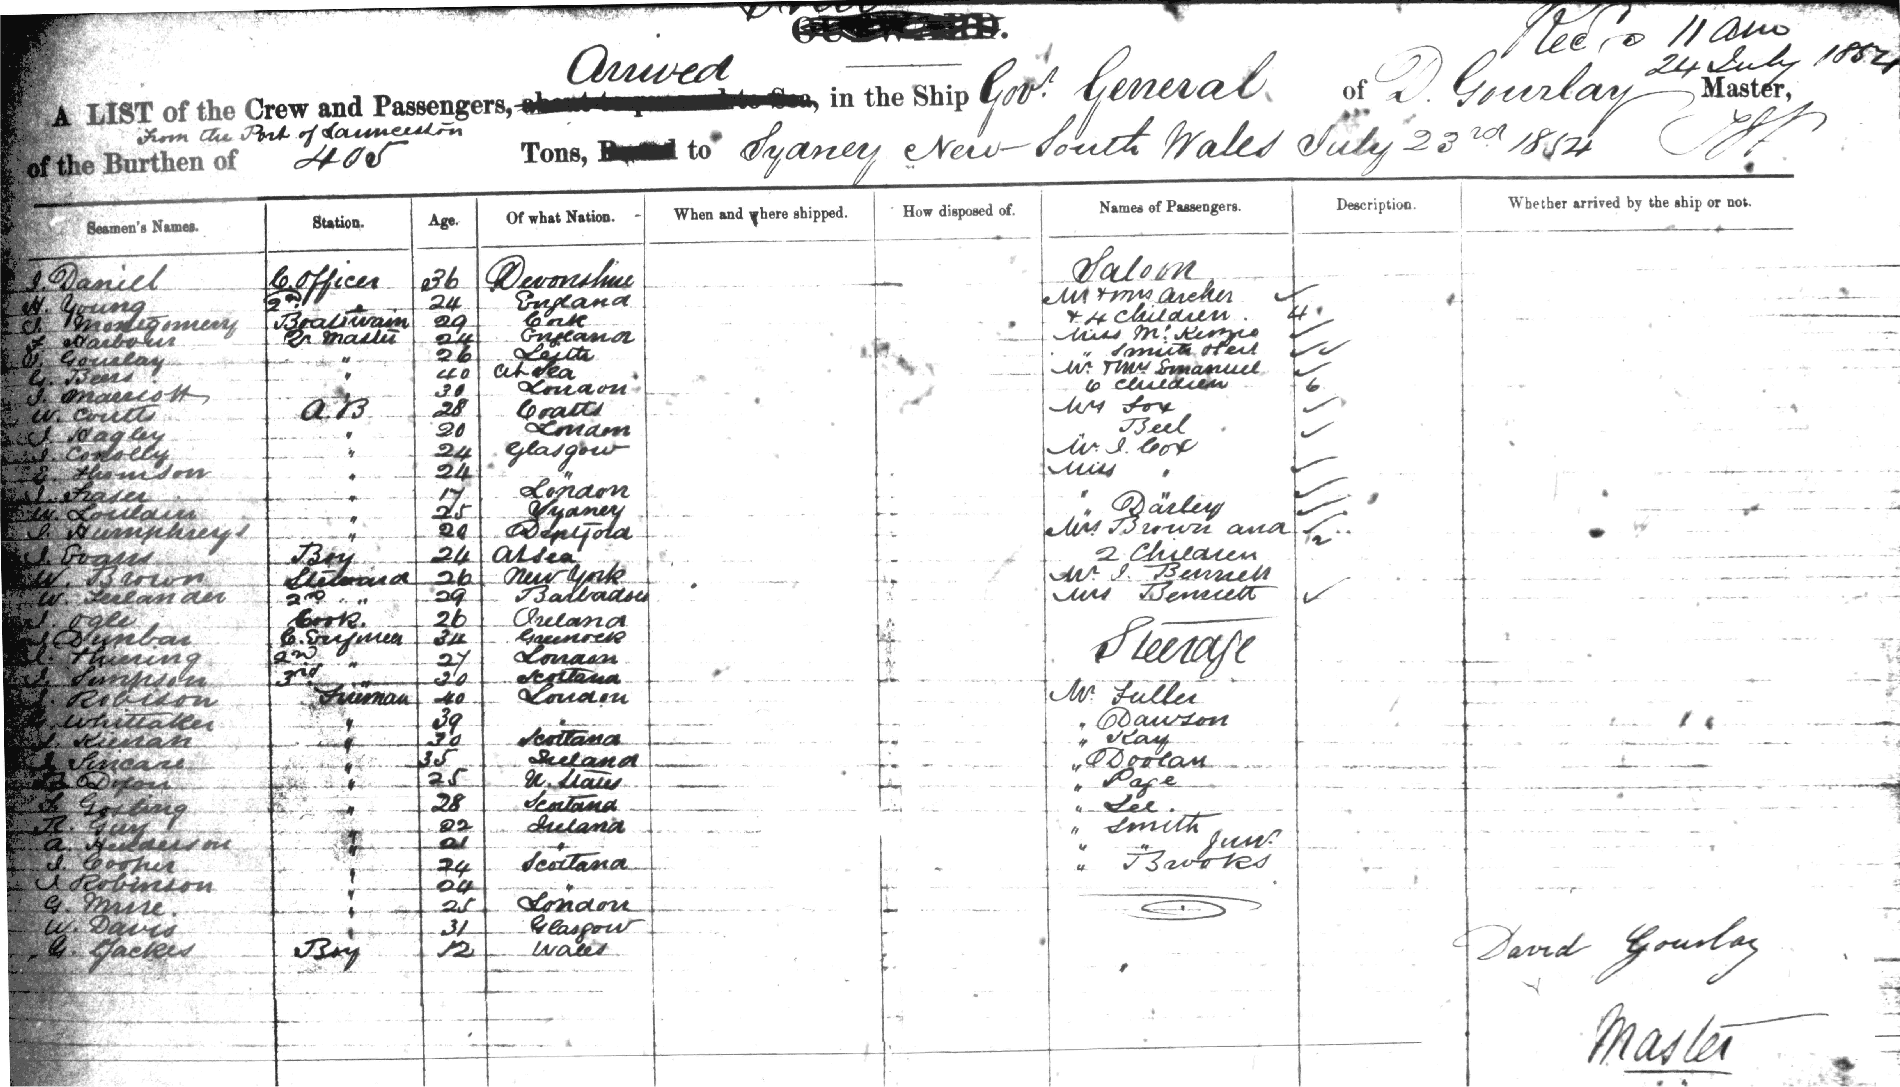 OUTWARD.
Rec'd 11 am
24 July 1854
Arrived
A LIST of the Crew and Passengers, about to proceed to Sea, in the Ship Govr. General of D. Gourlay Master,
From the Port of Launceston
of the Burthen of 405 Tons, Bound to Sydney New South Wales July 23rd 1854
Seamen's Names. Station. Age. Of what Nation. When and where shipped. How disposed of. Names of Passengers. Description. Whether arrived by the ship or not.
J. Daniel C. Officer 36 Devonshire Saloon
H. Young 2nd " 24 England Mr & Mrs Archer
J. Montgomery Boatswain 29 Cork & 4 Children. 4.
Harbour Qr Master 24 England Miss Mc. Kenzie
J. Gourlay " 26 Leith " Smith
G. Beers " 40 at Sea Mr. & Mrs Emanuel
J. Marriott 30 London 6 Children 6
W. Coutts A.B 28 Coatts Mrs Fox
J. Hagley " 20 London Bell
J. Conolly " 24 Glasgow Mr. J. Cox
Thomson " 24 " Miss "
J. Fraser " 17 London
W. " 25 Sydney " Darley
J. Humphreys " 20 Deptford Mrs Brown and 2
J. Evans Boy 24 At sea 2 Children
W. Brown Steward 26 New York Mr. J. Bennett
W. 2nd " 29 Barbadoes Mrs Bennett
J. Ogle Cook. 26 Ireland
J. Dunbar C. Engineer 34 Greenock Steerage
Thining 2nd " 27 London
J. Simpson 3rd " 30 Scotland
J. Robison Fireman 40 London Mr. Fuller
Whittaker " 39 " " Dawson
J. Kiernan " 30 Scotland " Kay
J. Sincare " 35 Ireland " Doolan
Dixon " 25 U. States " Page
Gosling " 28 Scotland " Lee.
R. Guy " 22 Ireland " Smith
A. Henderson " 21 " " " Junr.
J. Cooper " 24 Scotland " Brooks
J. Robinson " 24 "
G. " 25 London
W. Davis " 31 Glasgow
G. Jackes Boy 12 Wales
David Gourlay
Master